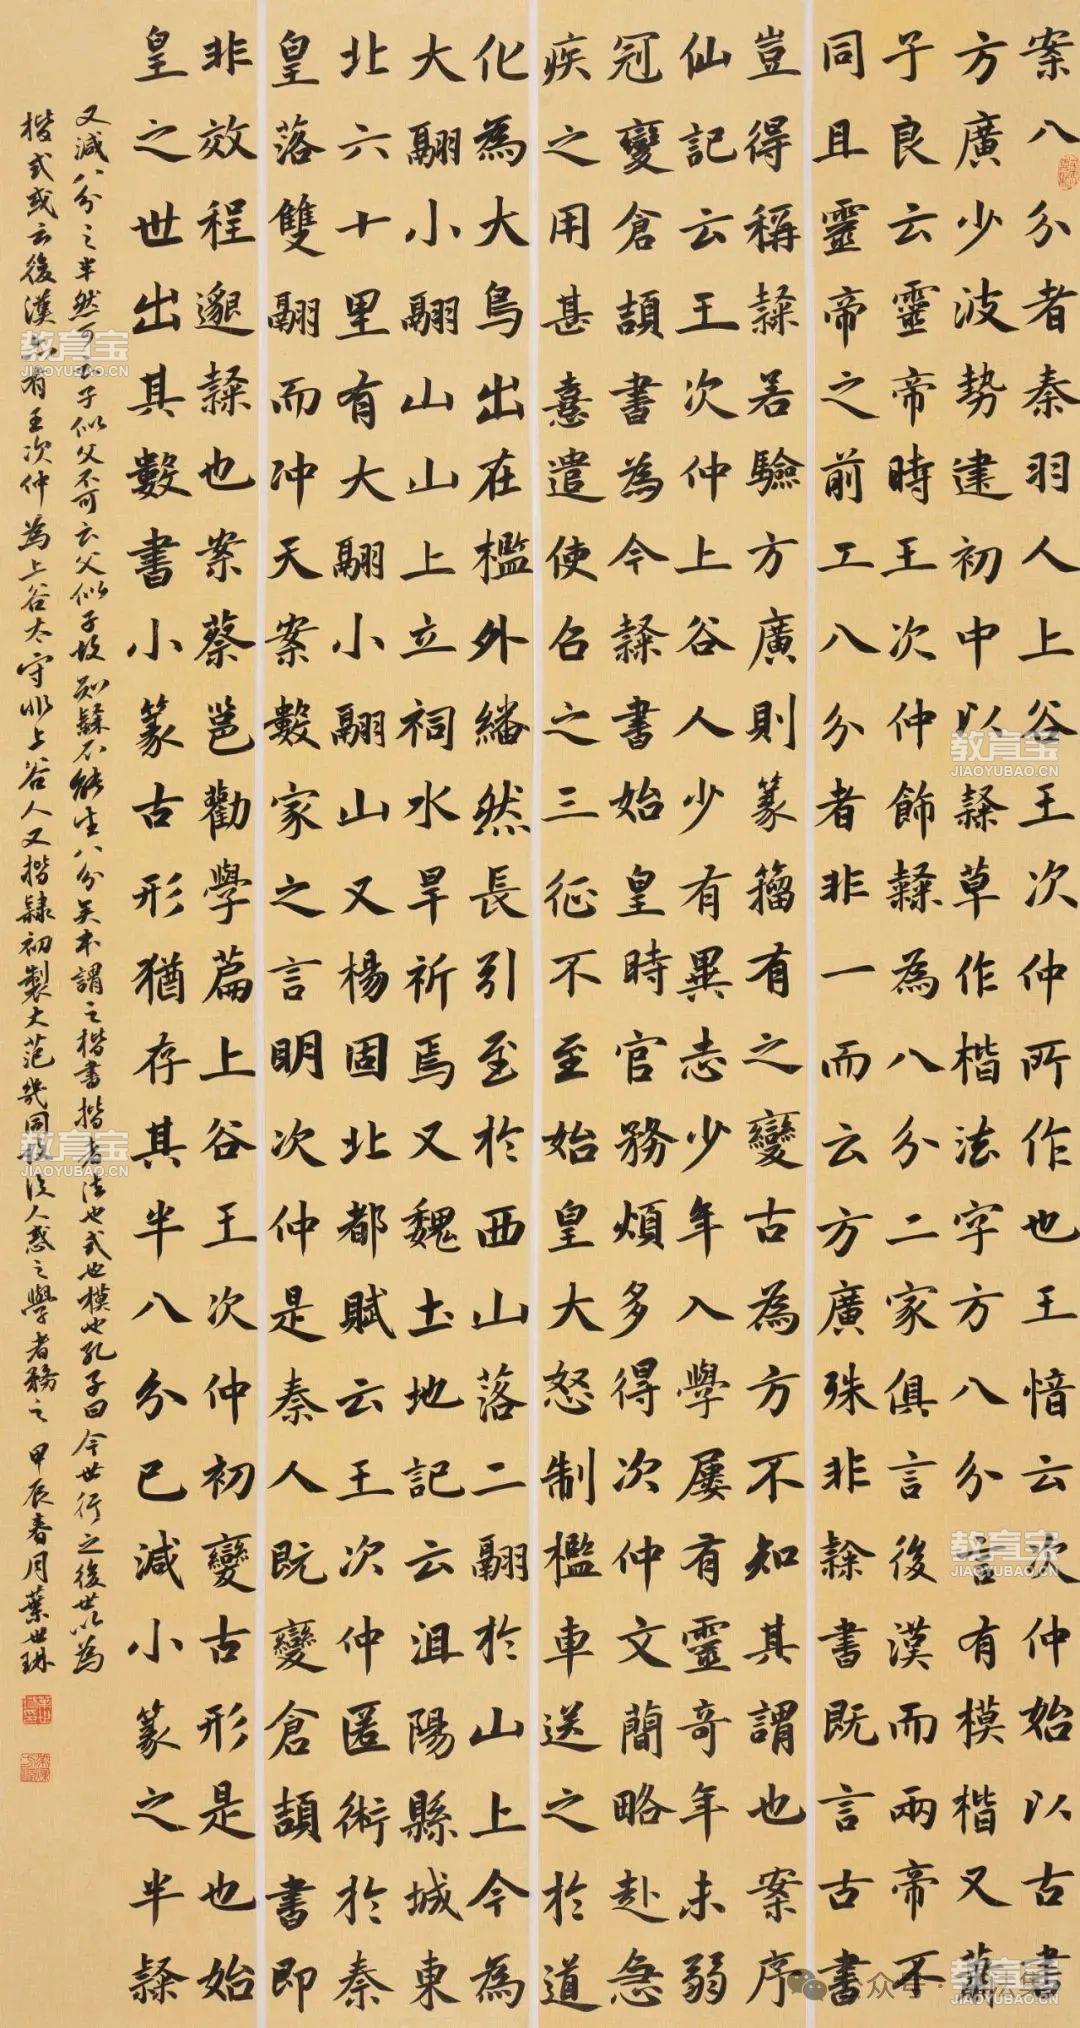 案八分者秦羽人上谷王次仲所作也王愔云次仲始以古書
方廣少波勢建初中以隸草作楷法字方八分言有模楷又蕭
子良云靈帝時王次仲飾隸為八分二家俱言後漢而兩帝不
同且靈帝之前工八分者非一而云方廣殊非隸書既言古書
豈得稱隸若驗方廣則篆籀有之變古為方不知其謂也案序
仙記云王次仲上谷人少有異志少年入學屢有靈奇年未弱
冠變倉頡書為今隸書始皇時官務煩多得次仲文簡略赴急
疾之用甚憙遣使召之三征不至始皇大怒制檻車送之於道
化為大鳥出在檻外翻然長引至於西山落二翮於山上今為
大翮小翮山山上立祠水旱祈焉又魏土地記云沮陽縣城東
北六十里有大翮小翮山又楊固北都賦云王次仲匿術於秦
皇落雙翮而冲天案數家之言明次仲是秦人既變倉頡書即
非效程邈隸也案蔡邕勸學篇上谷王次仲初變古形是也始
皇之世出其數書小篆古形猶存其半八分已減小篆之半隸
又減八分之半然可云子似父不可云父似子故知隸不能生八分矣本謂之楷書楷者法也式也模也孔子曰今世行之後世以為
楷式或云後漢亦有王次仲為上谷太守非上谷人又楷隸初製大范幾同故後人惑之學者務之 甲辰春月葉世琳
教育宝
JIAOYUBAO.CN
教育宝
JIAOYUBAO.CN
教育宝
JIAOYUBAO.CN
教育宝
JIAOYUBAO.CN
教育宝
JIAOYUBAO.CN
教育宝
JIAOYUBAO.CN
公众号